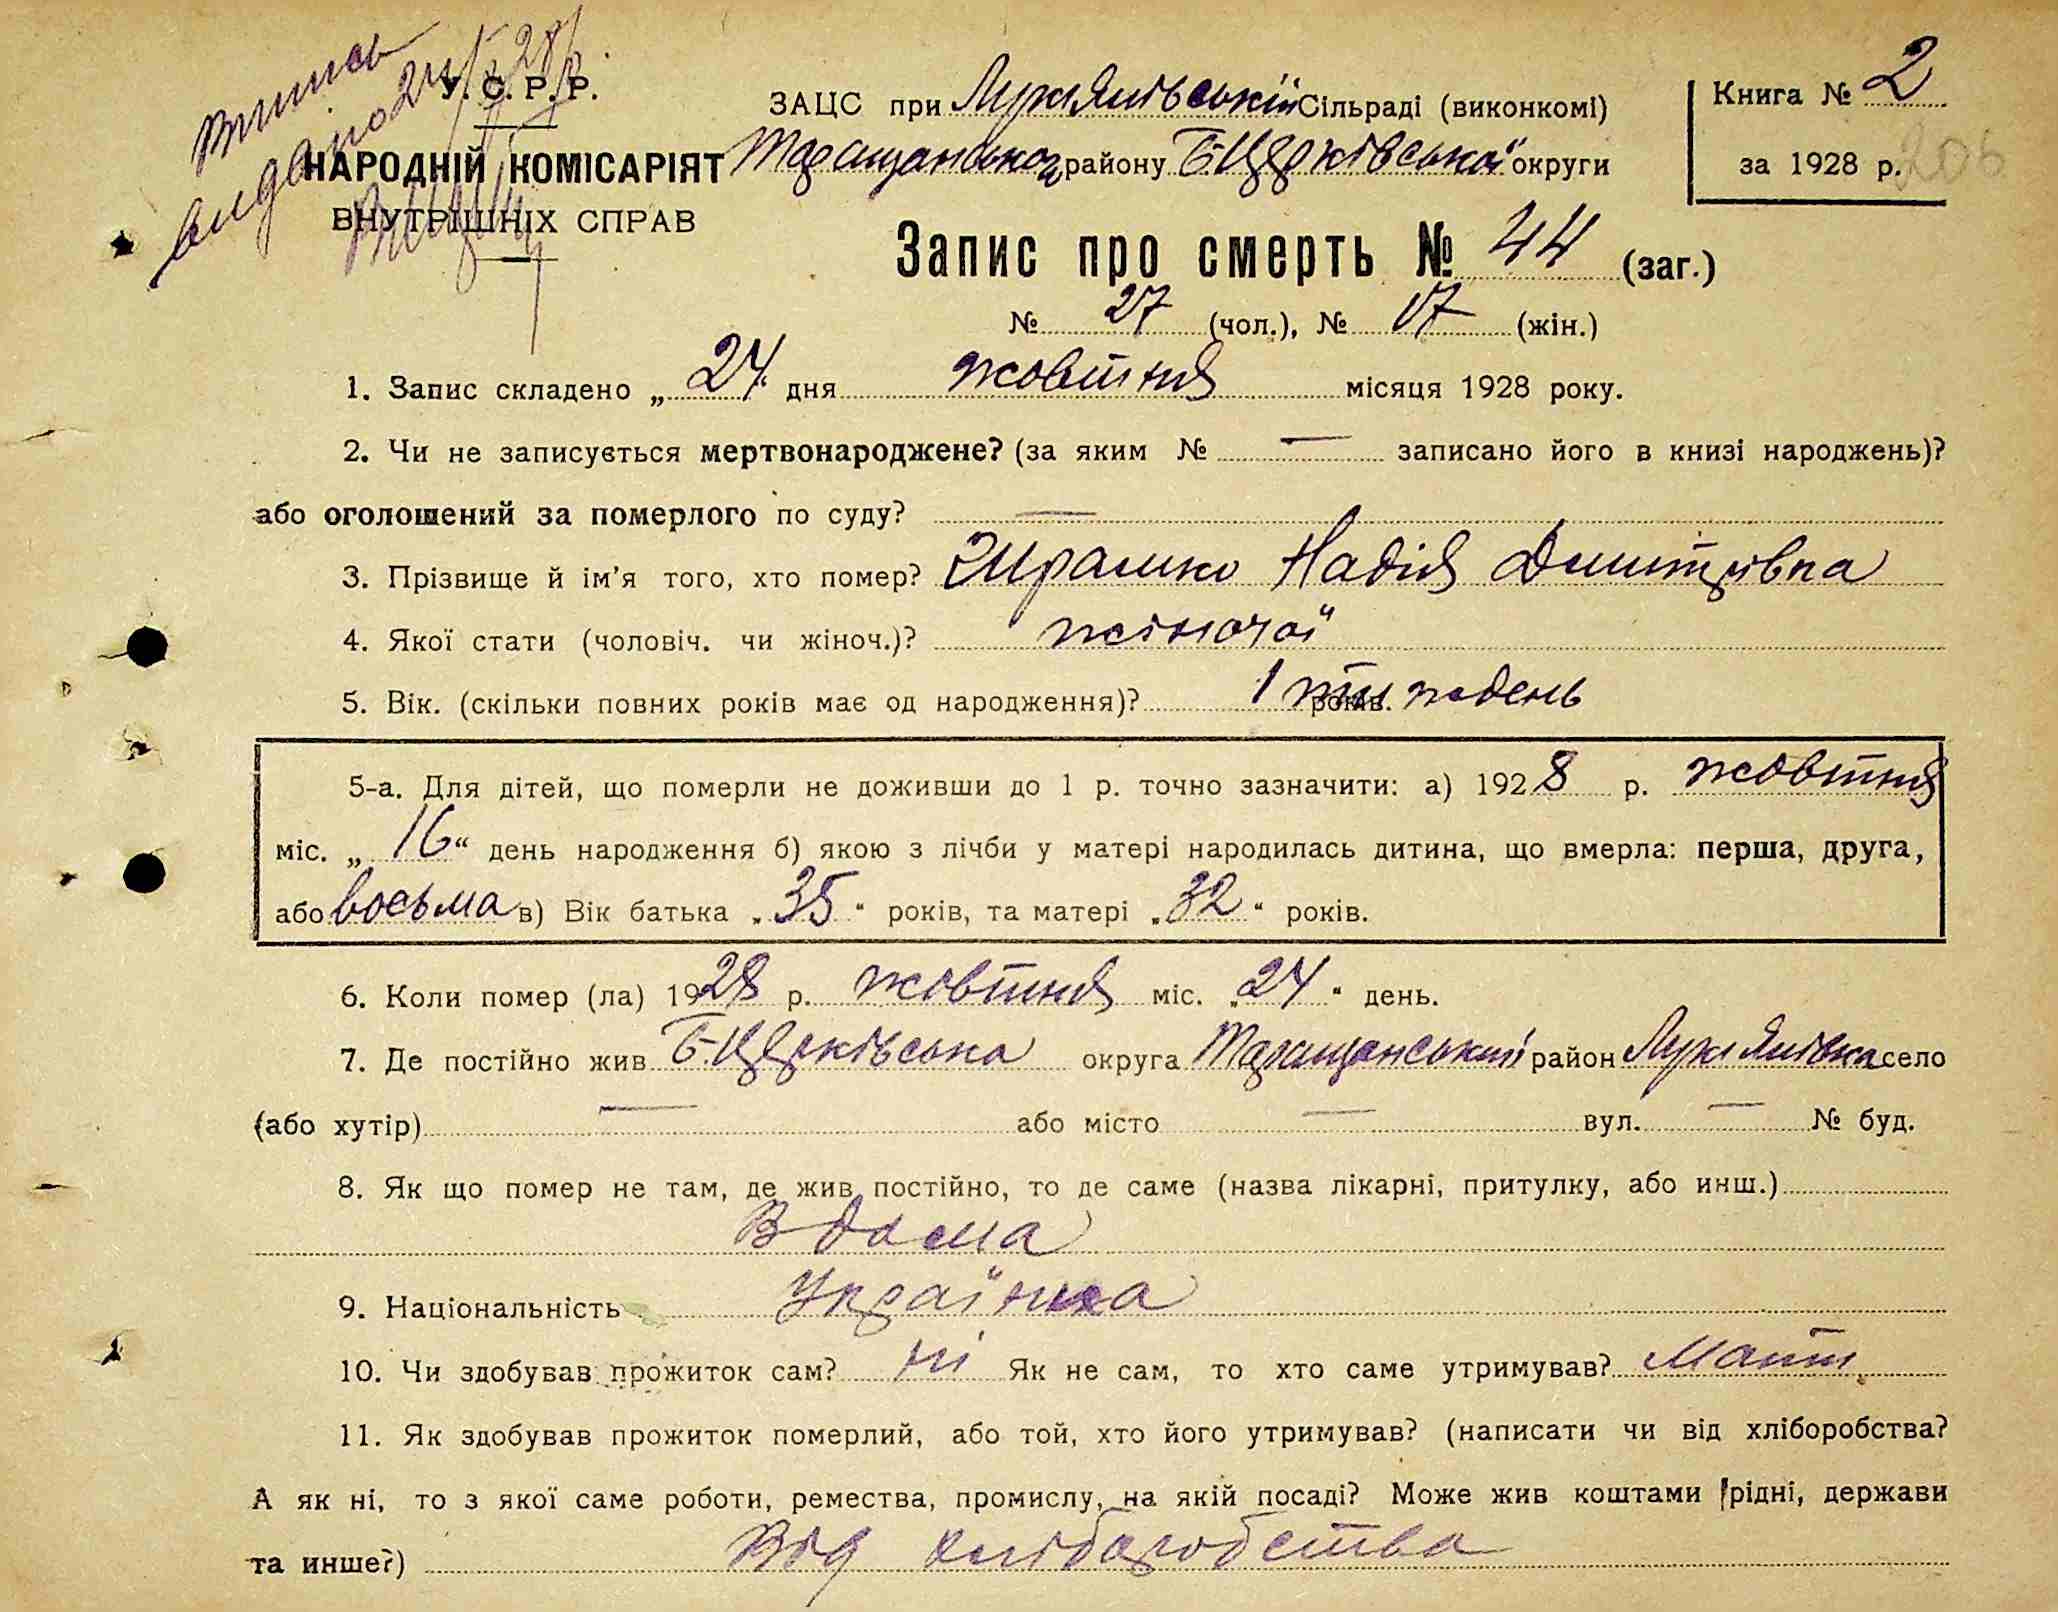 Випись
видано 24/X 28 р.
У. С. Р. Р.
НАРОДНІЙ КОМІСАРІЯТ
ВНУТРІШНІХ СПРАВ
ЗАЦС при Лукянівській Сільраді (виконкомі)
Таращанського району Б.Церківської округи
Книга № 2
за 1928 р. 206
Запис про смерть № 44 (заг.)
№ 27 (чол.), № 17 (жін.)
1. Запис складено „ 24 “ дня жовтня місяця 1928 року.
2. Чи не записується мертвонароджене? (за яким № — записано його в книзі народжень)?
або оголошений за померлого по суду? —
3. Прізвище й ім’я того, хто помер? Надія Дмитрівна
4. Якої стати (чоловіч. чи жіноч.)? жіночої
5. Вік. (скільки повних років має од народження)? 1 тиждень років.
5-а. Для дітей, що померли не доживши до 1 р. точно зазначити: а) 1928 р. жовтня
міс. „ 16 “ день народження б) якою з лічби у матері народилась дитина, що вмерла: перша, друга,
або восьма в) Вік батька „ 35 “ років, та матері „ 32 “ років.
6. Коли помер (ла) 1928 р. жовтня міс. „ 24 “ день.
7. Де постійно жив Б.Церківська округа Таращанський район Лукянівка село
(або хутір) — або місто — вул. — № буд.
8. Як що помер не там, де жив постійно, то де саме (назва лікарні, притулку, або инш.)
В дома
9. Національність Українка
10. Чи здобував прожиток сам? ні Як не сам, то хто саме утримував? Мати
11. Як здобував прожиток померлий, або той, хто його утримував? (написати чи від хліборобства?
А як ні, то з якої саме роботи, ремества, промислу, на якій посаді? Може жив коштами рідні, держави
та инше?) Від хліборобства